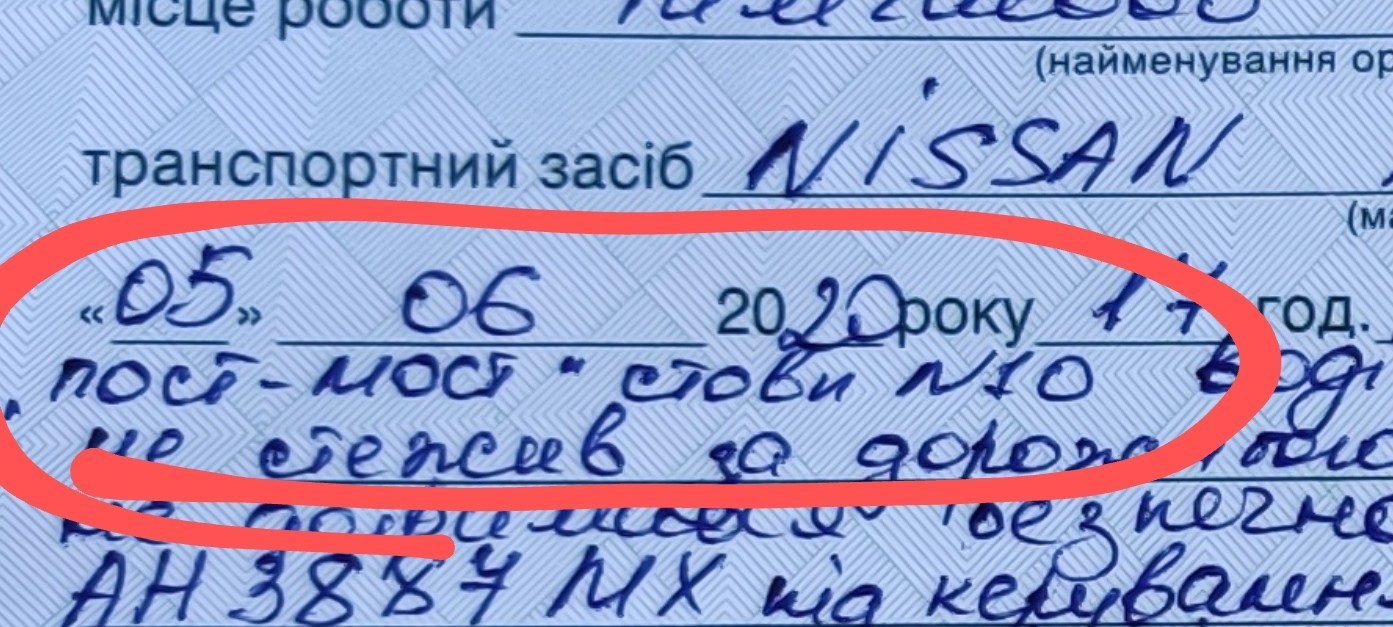 місце роботи
(найменування ор
транспортний засіб NiSSAN
(ма
«05» 06 2020 року 17 год.
„пост-мост" стовп №10 воді
не стежив за дорож
не безпечно
АН 3887 МХ під керуванн